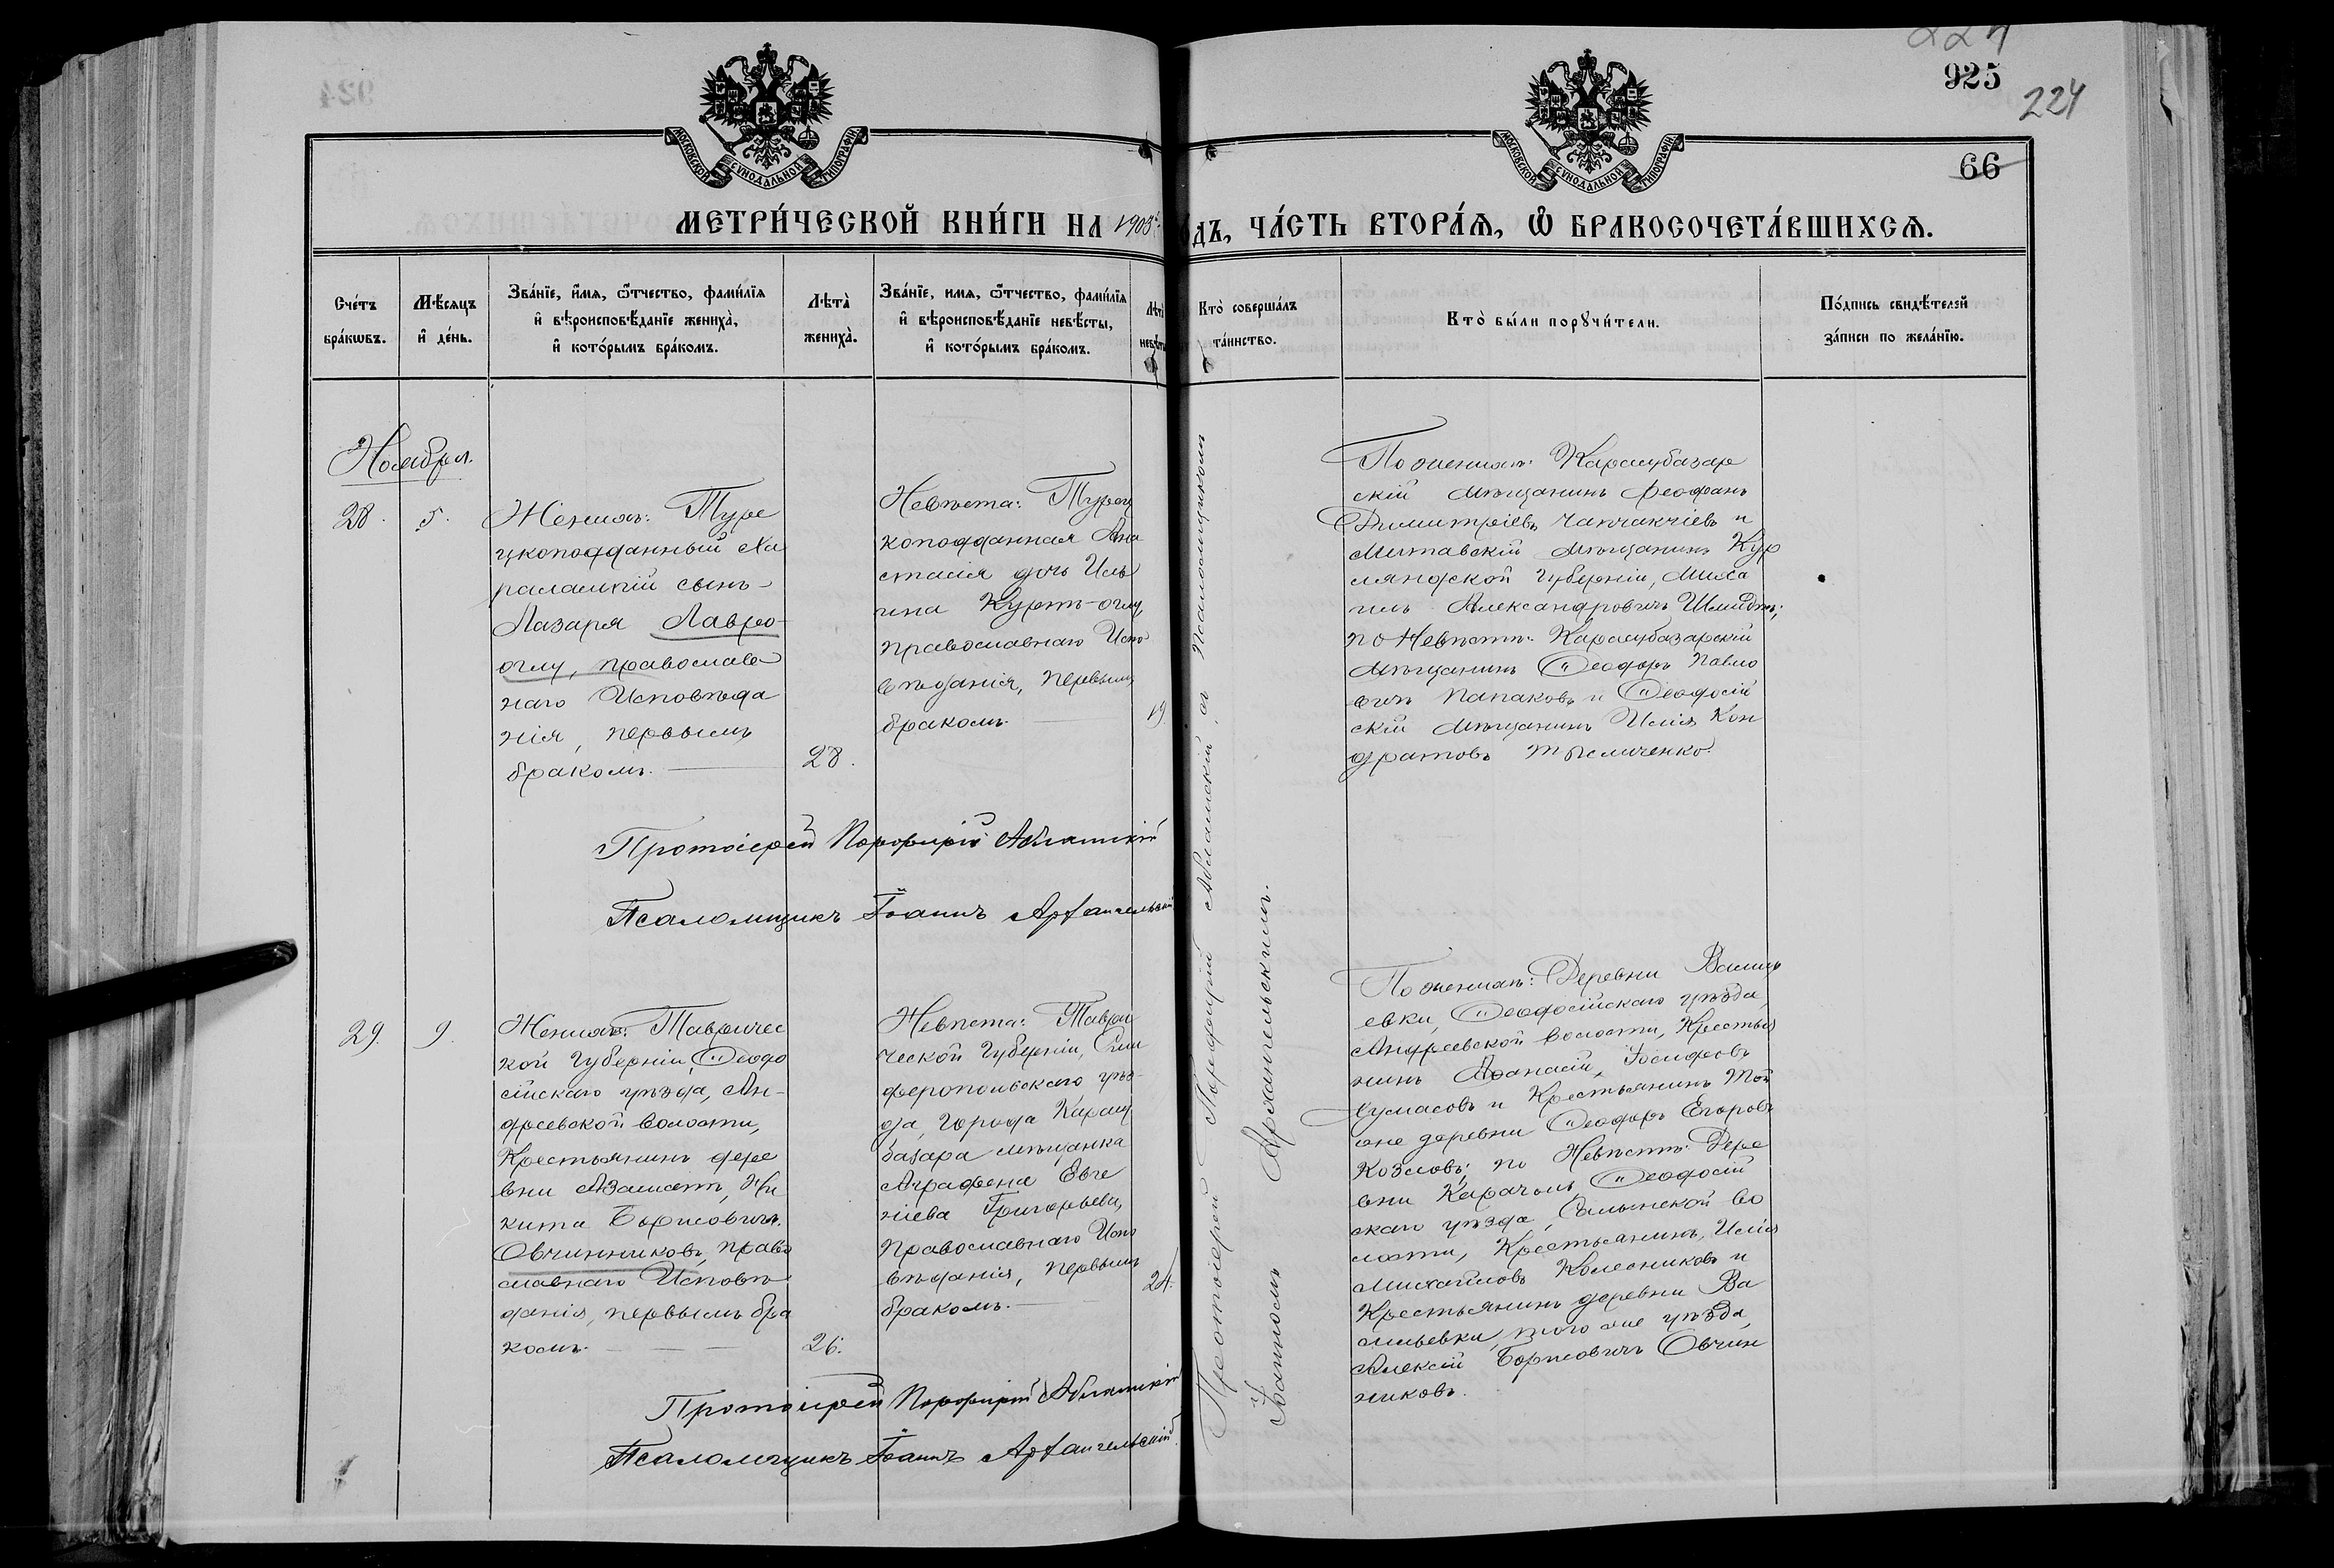 924
227
925
224
66
МОСКОВСКОЙ СѴНОДАЛЬНОЙ ТИПОГРАФІИ
МОСКОВСКОЙ СѴНОДАЛЬНОЙ ТИПОГРАФІИ
МЕТРИ́ЧЕСКОЙ КНИ́ГИ НА 1903 г.
ДЪ, ЧА́СТЬ ВТОРА́Ѧ, Ѽ БРАКОСОЧЕТА́ВШИХСѦ.
Сче́тъ
бра́кѡвъ.
Мѣ́сяцъ
и҆ де́нь.
Зва́нїе, и҆́мя, ѻ҆́тчество, фами́лїя
и҆ вѣроисповѣ́данїе жениха̀,
и҆ кото́рымъ бра́комъ.
Лѣ́та̀
жениха̀.
Зва́нїе, имя, ѻ҆́тчество, фами́лїя
и҆ вѣроисповѣ́данїе невѣ́сты,
и҆ кото́рымъ бра́комъ.
Лѣта̀
невѣсты
Кто̀ соверша́лъ
та́инство.
Кто̀ бы́ли порꙋчи́тели.
По́дпись свидѣ́телей
за́писи по жела́нїю.
Ноября.
28.
5.
Женихъ: Туре
цкоподданный Ха
ралампій сынъ
Лазаря Лавро-
оглу, православ
наго Исповѣда
нія, первымъ
бракомъ.
28.
Невѣста: Турец
коподданная Ана
стасія дочь Иль
ина Куртъ-оглу,
православнаго Испо
вѣданія, первымъ
бракомъ.
19.
По женихѣ: Карасубазар
скій мѣщанинъ Феофанъ
Димитріевъ Чапчакчіевъ и
Митавскій мѣщанинъ Кур
ляндской губерніи, Миха
илъ Александровичъ Шмидтъ;
по Невѣстѣ: Карасубазарскій
мѣщанинъ Ѳеодоръ Павло
вичъ Папаковъ и Ѳеодосій
скій мѣщанинъ Илія Кон
дратовъ
Протоіерей Порфирій
Псаломщикъ Іоаннъ Архангельскій
29.
9.
Женихъ: Тавричес
кой Губерніи, Ѳеодо
сійскаго уѣзда, Ан-
дреевской волости,
Крестьянинъ дере
вни Азаматъ, Ни
кита Борисовичъ
Овчинниковъ, право
славнаго Исповѣ
данія, первымъ бра
комъ.
26.
Невѣста: Таври
ческой Губерніи, Сим
феропольскаго уѣз-
да, города Карасу
базара мѣщанка
Аграфена Евге
ніева Григорьева,
Православнаго Испо
вѣданія, первымъ
бракомъ.
24.
По женихѣ: Деревни Василь
евки, Ѳеодосійскаго уѣзда,
Андреевской волости, Крестья
нинъ Афанасій Іосифовъ
и Крестьянинъ той
же деревни Ѳеодоръ Егоровъ
Козловъ; по Невѣстѣ: Дере
вни Карачолъ, Ѳеодосій
скаго уѣзда, Салынской во
лости, Крестьянинъ, Илія
Михайловъ Колесниковъ и
Крестьянинъ деревни Ва
сильевки, того же уѣзда,
Алексій Борисовичъ Овчин
никовъ.
Протоіерей Порфирій
Псаломщикъ Іоаннъ Архангельскій
Протоіерей Порфирій съ Псаломщикомъ
Іоанномъ Архангельскимъ.